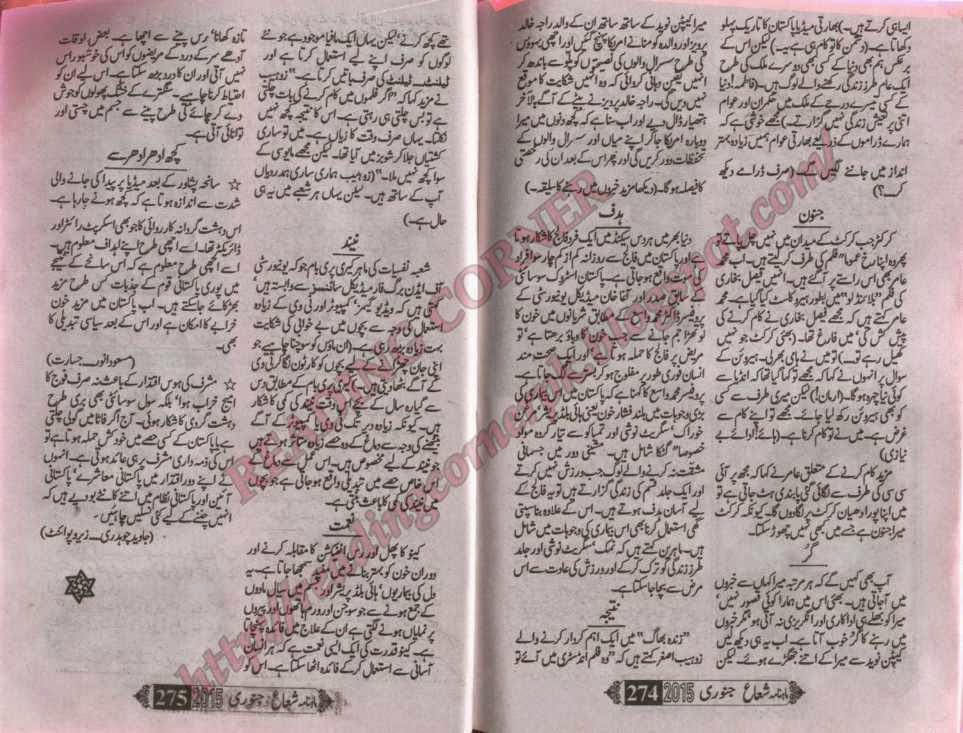 ایسا ہی کرتے ہیں۔) بھارتی میڈیا پاکستان کا تاریک پہلو
دکھاتا ہے۔ (دشمن کا تو کام ہی یہ ہے۔) لیکن اس کے
برعکس ہم بھی دنیا کے کسی بھی دوسرے ملک کی طرح
ایک عام طرز زندگی رکھنے والے لوگ ہیں۔ (فائقہ! دنیا
کے کسی تیسرے درجے کے ملک میں حکمران اور عوام
اتنی پر تعیش زندگی نہیں گزارتے۔) مجھے خوشی ہے کہ
ہمارے ڈراموں کے ذریعے بھارتی عوام ہمیں زیادہ بہتر
انداز میں جاننے لگیں گے۔ (صرف ڈرامے دیکھ
کر۔؟)
جنون
کرکٹر جب کرکٹ کے میدان میں نہیں چل پاتے تو
پھر وہ اپنا رخ عموماً فلم کی طرف کرتے ہیں۔ اب محمد
عامر بھی اس راستے پر آگئے ہیں۔ انہیں فیصل بخاری
کی فلم "بلائنڈ لو" میں بطور ہیرو کاسٹ کیا گیا ہے۔ محمد
عامر کہتے ہیں کہ مجھے فیصل بخاری نے کام کرنے کی
پیش کش کی میں فارغ تھا۔ (یعنی کرکٹ جو نہیں
کھیل رہے تو۔) تو میں نے ہامی بھرلی۔ ہیروئن کے
سوال پر انہوں نے کہا کہ مجھے تو کہا گیا تھا کہ انڈیا سے
کوئی نیا چہرہ ہوگا۔ (ارمان!) لیکن میری طرف سے کسی
کو بھی ہیروئن رکھ لیا جائے۔ مجھے تو اپنے کام سے
غرض ہے۔ میں نے تو کام کرنا ہے۔ (ہائے! اوائے بے
نیازی)
مزید کام کرنے کے متعلق عامر نے کہا کہ مجھ پر آئی
سی سی کی طرف سے لگائی گئی پابندی ہٹ جاتی ہے تو
میں اپنا پورا دھیان کرکٹ پر لگادوں گا۔ کیونکہ کرکٹ
میرا جنون ہے جسے میں کبھی نہیں چھوڑ سکتا۔
گر
آپ بھی کہیں گے کہ ہر مرتبہ میرا کہاں سے خبروں
میں آجاتی ہیں۔ بھئی اس میں ہمارا کوئی قصور نہیں
میرا کو بھلے ہی اداکاری اور انگریزی نہ آتی ہو مگر خبروں
میں رہنے کا گر خوب آتا ہے۔ اب یہ ہی دیکھ لیں
کیپٹن نوید سے میرا کے اتنے جھگڑے ہوئے۔ لیکن
میرا کیپٹن نوید کے ساتھ ساتھ ان کے والد راجہ خالد
پرویز اور والدہ کو منانے امریکا پہنچ گئیں اور اچھی بہوؤں
کی طرح سسرال والوں کی نصیحتوں کو پلو سے باندھ کر
انہیں یقین دہانی کروائی کہ وہ انہیں شکایت کا موقع
نہیں دیں گی۔ راجہ خالد پرویز نے بیٹے کے آگے بالآخر
ہتھیار ڈال دیے اور اب سنا ہے کہ کچھ دنوں میں میرا
دوبارہ امریکا جاکر اپنے میاں اور سسرال والوں کے
تحفظات دور کریں گی اور پھر اس کے بعد ان کی رخصتی
کا فیصلہ ہوگا۔ (دیکھا مزید خبروں میں رہنے کا سلیقہ۔)
ہدف
دنیا بھر میں ہر دس سیکنڈ میں ایک فرد فالج کا شکار ہوتا
ہے اور پاکستان میں فالج سے روزانہ کم از کم چار سو افراد
کی موت واقع ہوجاتی ہے۔ پاکستان اسٹروک سوسائٹی
کے سابق صدر اور آغا خان میڈیکل یونیورسٹی کے
پروفیسر ڈاکٹر محمد واسع کے مطابق شریانوں میں خون کا
لوتھڑا جم جانے سے خون کا دباؤ بڑھتا ہے تو
مریض پر فالج کا حملہ ہوتا ہے اور ایک صحت مند
انسان فوری طور پر مفلوج ہوکر بستر پر پڑ جاتا ہے۔
پروفیسر محمد واسع کا کہنا ہے کہ پاکستان میں اس کی
بڑی وجوہات میں بلند فشار خون یعنی ہائی بلڈ پریشر مرغن
خوراک، سگریٹ نوشی اور تمباکو سے تیار کردہ مواد
خصوصاً گٹکا شامل ہیں۔ مشینی دور میں جسمانی
مشقت نہ کرنے والے لوگ جب ورزش نہیں کرتے
اور ایک جلد قسم کی زندگی گزارتے ہیں تو یہ فالج کے
لیے آسان ہدف ہوتے ہیں۔ اس کے علاوہ بناسپتی
گھی استعمال کرنا بھی اس بیماری کی وجوہات میں شامل
ہیں۔ ماہرین کہتے ہیں کہ نمک، سگریٹ نوشی اور جلد
طرز زندگی کو ترک کرکے اور ورزش کی عادت سے اس
مرض سے بچا جاسکتا ہے۔
نتیجہ
"زندہ بھاگ" میں ایک اہم کردار کرنے والے
زوہیب اصغر کہتے ہیں کہ "وہ فلم انڈسٹری میں آئے تو
ماہنامہ شعاع جنوری 2015 274
تھے کچھ کرنے، لیکن یہاں ایک مافیا موجود ہے جو نئے
لوگوں کو صرف اپنے لیے استعمال کرتا ہے اور
ٹیلنٹ۔ ٹیلنٹ کی صرف باتیں کرتا ہے۔" زوہیب
نے مزید کہا کہ "اگر فلموں میں کام کرنے کی بات چلتی
ہے تو بس چلتی ہی رہتی ہے۔ اس کا نتیجہ کچھ نہیں
نکلتا۔ یہاں صرف وقت کا زیاں ہے۔ میں تو ساری
کشتیاں جلاکر شوبز میں آیا تھا۔ لیکن مجھے مایوسی کے
سوا کچھ نہیں ملا۔" (زوہیب ہماری ساری ہمدردیاں
آپ کے ساتھ ہیں۔ لیکن یہاں ہر شعبے میں یہ ہی
حال ہے۔)
نیند
شعبہ نفسیات کی ماہر کیری پری ہام جو کہ یونیورسٹی
آف ایڈن برگ فار میڈیکل سائنسز سے وابستہ ہیں
کہتی ہیں کہ ویڈیو گیمز، کمپیوٹر اور ٹی وی کے زیادہ
استعمال کی وجہ سے بچوں میں بے خوابی کی شکایت
بہت زیادہ بڑھ رہی ہے۔ (ان ماؤں کو سوچنا چاہیے جو
اپنی جان چھڑانے کے لیے بچوں کو کارٹون لگا کر ٹی وی
کے آگے بٹھادیتی ہیں۔) کیری پری ہام کے مطابق دس
سے گیارہ سال کے بچے اکثر وقت نیند کی کمی کا شکار
ہیں۔ کیونکہ زیادہ دیر تک ٹی وی یا کمپیوٹر کے آگے
بیٹھنے کی وجہ سے دماغ کے وہ حصے زیادہ متاثر ہوتے ہیں
جو نیند کے لیے مخصوص ہیں۔ اس عمل سے دماغ کے
اس خاص حصے میں تبدیلی واقع ہوجاتی ہے جو بچوں
میں نیند کی کمی کا باعث بنتی ہے۔
نعمت
کینو کا پھل اور رس انفیکشن کا مقابلہ کرنے اور
دوران خون کو بہتر بنانے میں مفید سمجھا جاتا ہے۔ یہ
دل کی بیماریوں، ہائی بلڈ پریشر اور جسم میں سیال مادوں
کے جمع ہونے سے جو سوجن اور ورم ہاتھوں اور پیروں
پر نمایاں ہونے لگتی ہے ان کے علاج میں فائدہ پہنچاتا
ہے۔ کینو قدرت کی ایک ایسی نعمت ہے کہ ہر انسان
آسانی سے استعمال کرکے فائدہ اٹھا سکتا ہے۔ اس کو
تازہ کھانا، رس پینے سے اچھا ہے۔ بعض اوقات
آدھے سر کے درد کے مریضوں کو اس کی خوشبو راس
نہیں آتی اور ان کا درد بڑھ سکتا ہے۔ اس لیے ان کو
احتیاط کرنا چاہیے۔ سنگترے کے خشک پھولوں کو جوش
دے کر چائے کی طرح پینے سے جسم میں چستی اور
توانائی آتی ہے۔
کچھ ادھر ادھر سے
☆ سانحہ پشاور کے بعد میڈیا پر پیدا کی جانے والی
شدت سے اندازہ ہوتا ہے کہ کچھ ہونے جارہا ہے۔
اس دہشت گردانہ کارروائی کا جو بھی اسکرپٹ رائٹر اور
ڈائریکٹر تھا۔ اسے اچھی طرح اپنے اہداف معلوم ہیں۔
اسے اچھی طرح معلوم ہے کہ اس سانحے کے نتیجے
میں پوری پاکستانی قوم کے جذبات کس طرح مزید
بھڑکائے جاسکتے ہیں۔ اب پاکستان میں مزید خون
خرابے کا امکان ہے اور اس کے بعد سیاسی تبدیلی کا
بھی۔
(مسعود انور۔ جسارت)
☆ مشرف کی ہوس اقتدار کے باعث نہ صرف فوج کا
امیج خراب ہوا، بلکہ سول سوسائٹی بھی بری طرح
دہشت گردی کا شکار ہوئی۔ آج اگر فاٹا میں گولی چلتی
ہے یا پاکستان کے کسی حصے میں خودکش حملہ ہوتا ہے تو
اس کی ذمہ داری مشرف پر ہی عائد ہوتی ہے۔ انہوں
نے اپنے دور اقتدار میں پاکستانی معاشرے، پاکستانی
آئین اور پاکستانی نظام میں اتنے کانٹے بو دیے ہیں کہ
انہیں چننے کے لیے کئی نسلیں چاہئیں۔
(جاوید چوہدری۔ زیرو پوائنٹ)
ماہنامہ شعاع جنوری 2015 275
READING CORNER
http://readingcornerpk.blogspot.com/